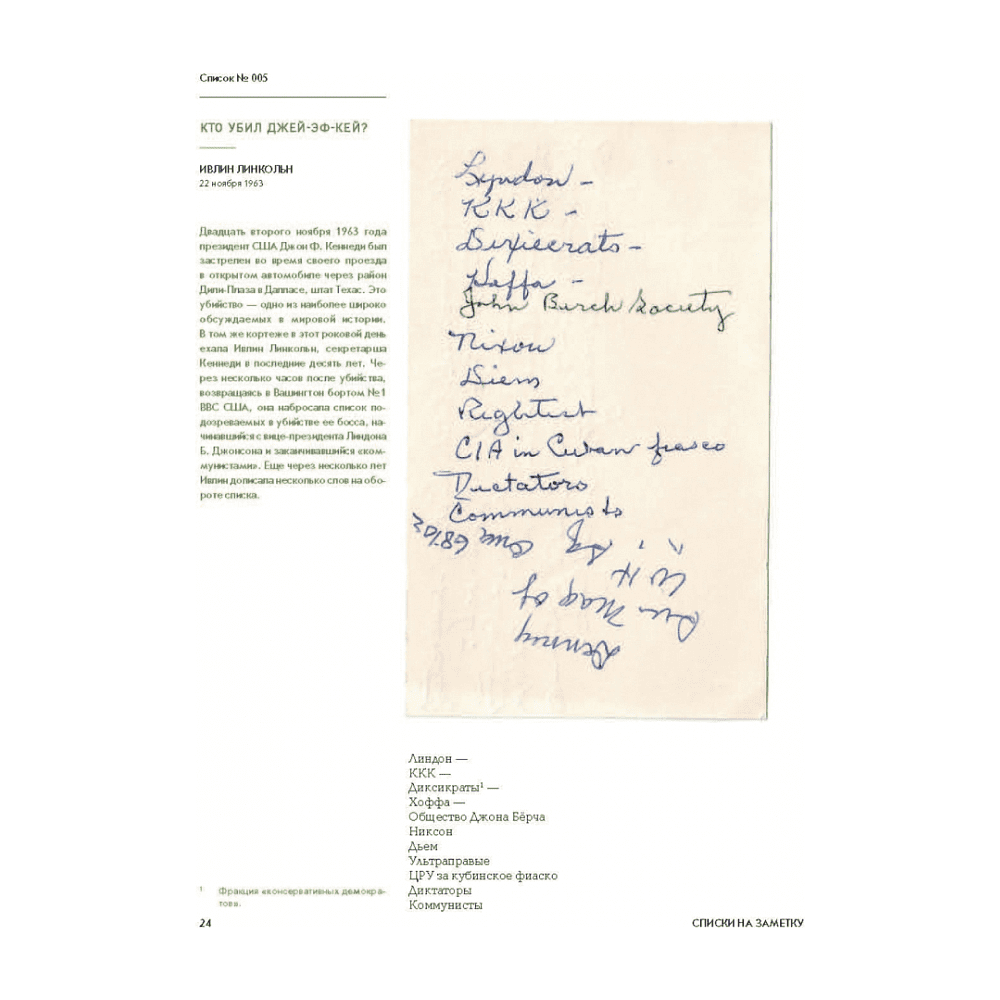 Список № 005
КТО УБИЛ ДЖЕЙ-ЭФ-КЕЙ?
ИВЛИН ЛИНКОЛЬН
22 ноября 1963
Двадцать второго ноября 1963 года
президент США Джон Ф. Кеннеди был
застрелен во время своего проезда
в открытом автомобиле через район
Дили-Плаза в Далласе, штат Техас. Это
убийство — одно из наиболее широко
обсуждаемых в мировой истории.
В том же кортеже в этот роковой день
ехала Ивлин Линкольн, секретарша
Кеннеди в последние десять лет. Че-
рез несколько часов после убийства,
возвращаясь в Вашингтон бортом №1
ВВС США, она набросала список по-
дозреваемых в убийстве ее босса, на-
чинавшийся с вице-президента Линдона
Б. Джонсона и заканчивавшийся «ком-
мунистами». Еще через несколько лет
Ивлин дописала несколько слов на обо-
роте списка.
Lyndon –
KKK –
Dixiecrats –
Hoffa –
John Birch Society
Nixon
Diem
Rightist
CIA in Cuban fiasco
Dictators
Communists
Линдон —
ККК —
Диксикраты¹ —
Хоффа —
Общество Джона Бёрча
Никсон
Дьем
Ультраправые
ЦРУ за кубинское фиаско
Диктаторы
Коммунисты
¹ Фракция «консервативных демокра-
тов».
24
СПИСКИ НА ЗАМЕТКУ